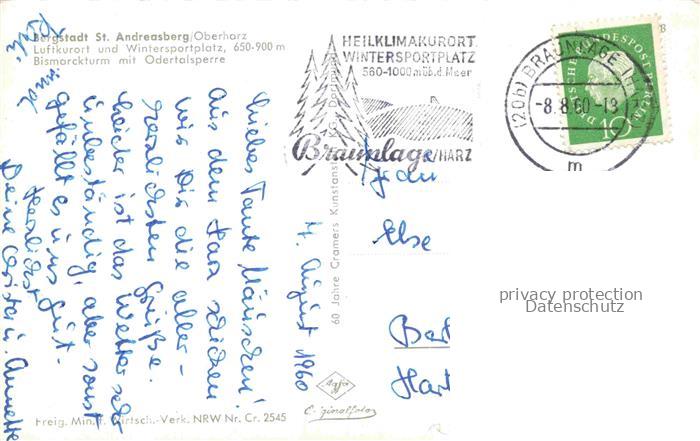 Bergstadt St. Andreasberg/Oberharz
Luftkurort und Wintersportplatz, 650-900 m
Bismarckturm mit Odertalsperre
HEILKLIMAKURORT
WINTERSPORTPLATZ
560-1000 m üb.d.Meer
Braunlage/HARZ
(20b) BRAUNLAGE
-8.8.60-18
m
DEUTSCHE BUNDESPOST BERLIN
10
4. August 1960
Liebes Tante Mäuschen!
Aus dem Harz schicken
wir Dir die aller-
herzlichsten Grüße.
Leider ist das Wetter sehr
unbeständig, aber sonst
gefällt es uns gut.
Herzlichst
Deine Christa u. Annette
60 Jahre Cramers Kunstanst
Dortmund
Else
privacy protection
Datenschutz
Agfa
Freig. Min. f. Wirtsch.-Verk. NRW Nr. Cr. 2545